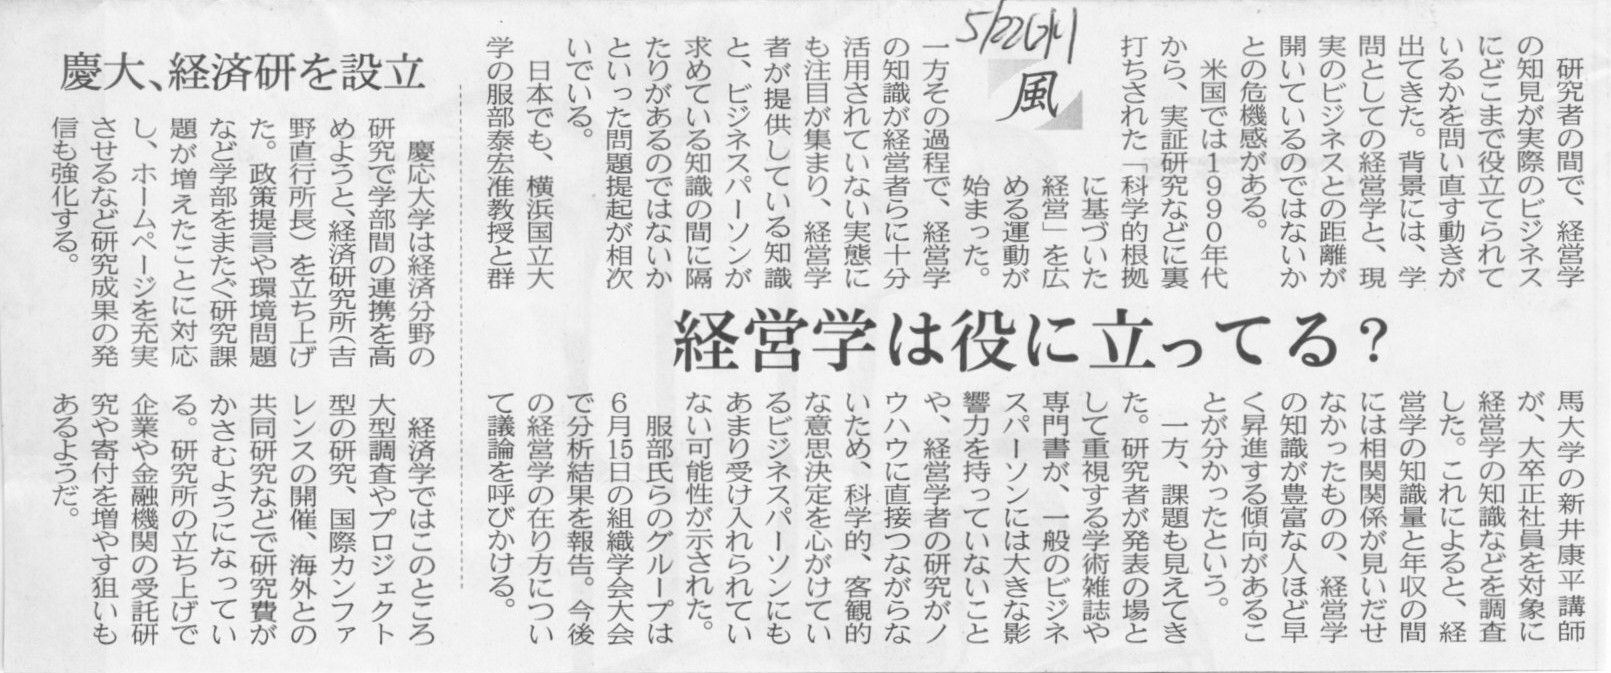 5/22(水)
風
経営学は役に立ってる?
研究者の間で、経営学
の知見が実際のビジネス
にどこまで役立てられて
いるかを問い直す動きが
出てきた。背景には、学
問としての経営学と、現
実のビジネスとの距離が
開いているのではないか
との危機感がある。
米国では1990年代
から、実証研究などに裏
打ちされた「科学的根拠
に基づいた
経営」を広
める運動が
始まった。
一方その過程で、経営学
の知識が経営者らに十分
活用されていない実態に
も注目が集まり、経営学
者が提供している知識
と、ビジネスパーソンが
求めている知識の間に隔
たりがあるのではないか
といった問題提起が相次
いでいる。
日本でも、横浜国立大
学の服部泰宏准教授と群
馬大学の新井康平講師
が、大卒正社員を対象に
経営学の知識などを調査
した。これによると、経
営学の知識量と年収の間
には相関関係が見いだせ
なかったものの、経営学
の知識が豊富な人ほど早
く昇進する傾向があるこ
とが分かったという。
一方、課題も見えてき
た。研究者が発表の場と
して重視する学術雑誌や
専門書が、一般のビジネ
スパーソンには大きな影
響力を持っていないこと
や、経営学者の研究がノ
ウハウに直接つながらな
いため、科学的、客観的
な意思決定を心がけてい
るビジネスパーソンにも
あまり受け入れられてい
ない可能性が示された。
服部氏らのグループは
6月15日の組織学会大会
で分析結果を報告。今後
の経営学の在り方につい
て議論を呼びかける。
慶大、経済研を設立
慶応大学は経済分野の
研究で学部間の連携を高
めようと、経済研究所(吉
野直行所長)を立ち上げ
た。政策提言や環境問題
など学部をまたぐ研究課
題が増えたことに対応
し、ホームページを充実
させるなど研究成果の発
信も強化する。
経済学ではこのところ
大型調査やプロジェクト
型の研究、国際カンファ
レンスの開催、海外との
共同研究などで研究費が
かさむようになってい
る。研究所の立ち上げで
企業や金融機関の受託研
究や寄付を増やす狙いも
あるようだ。